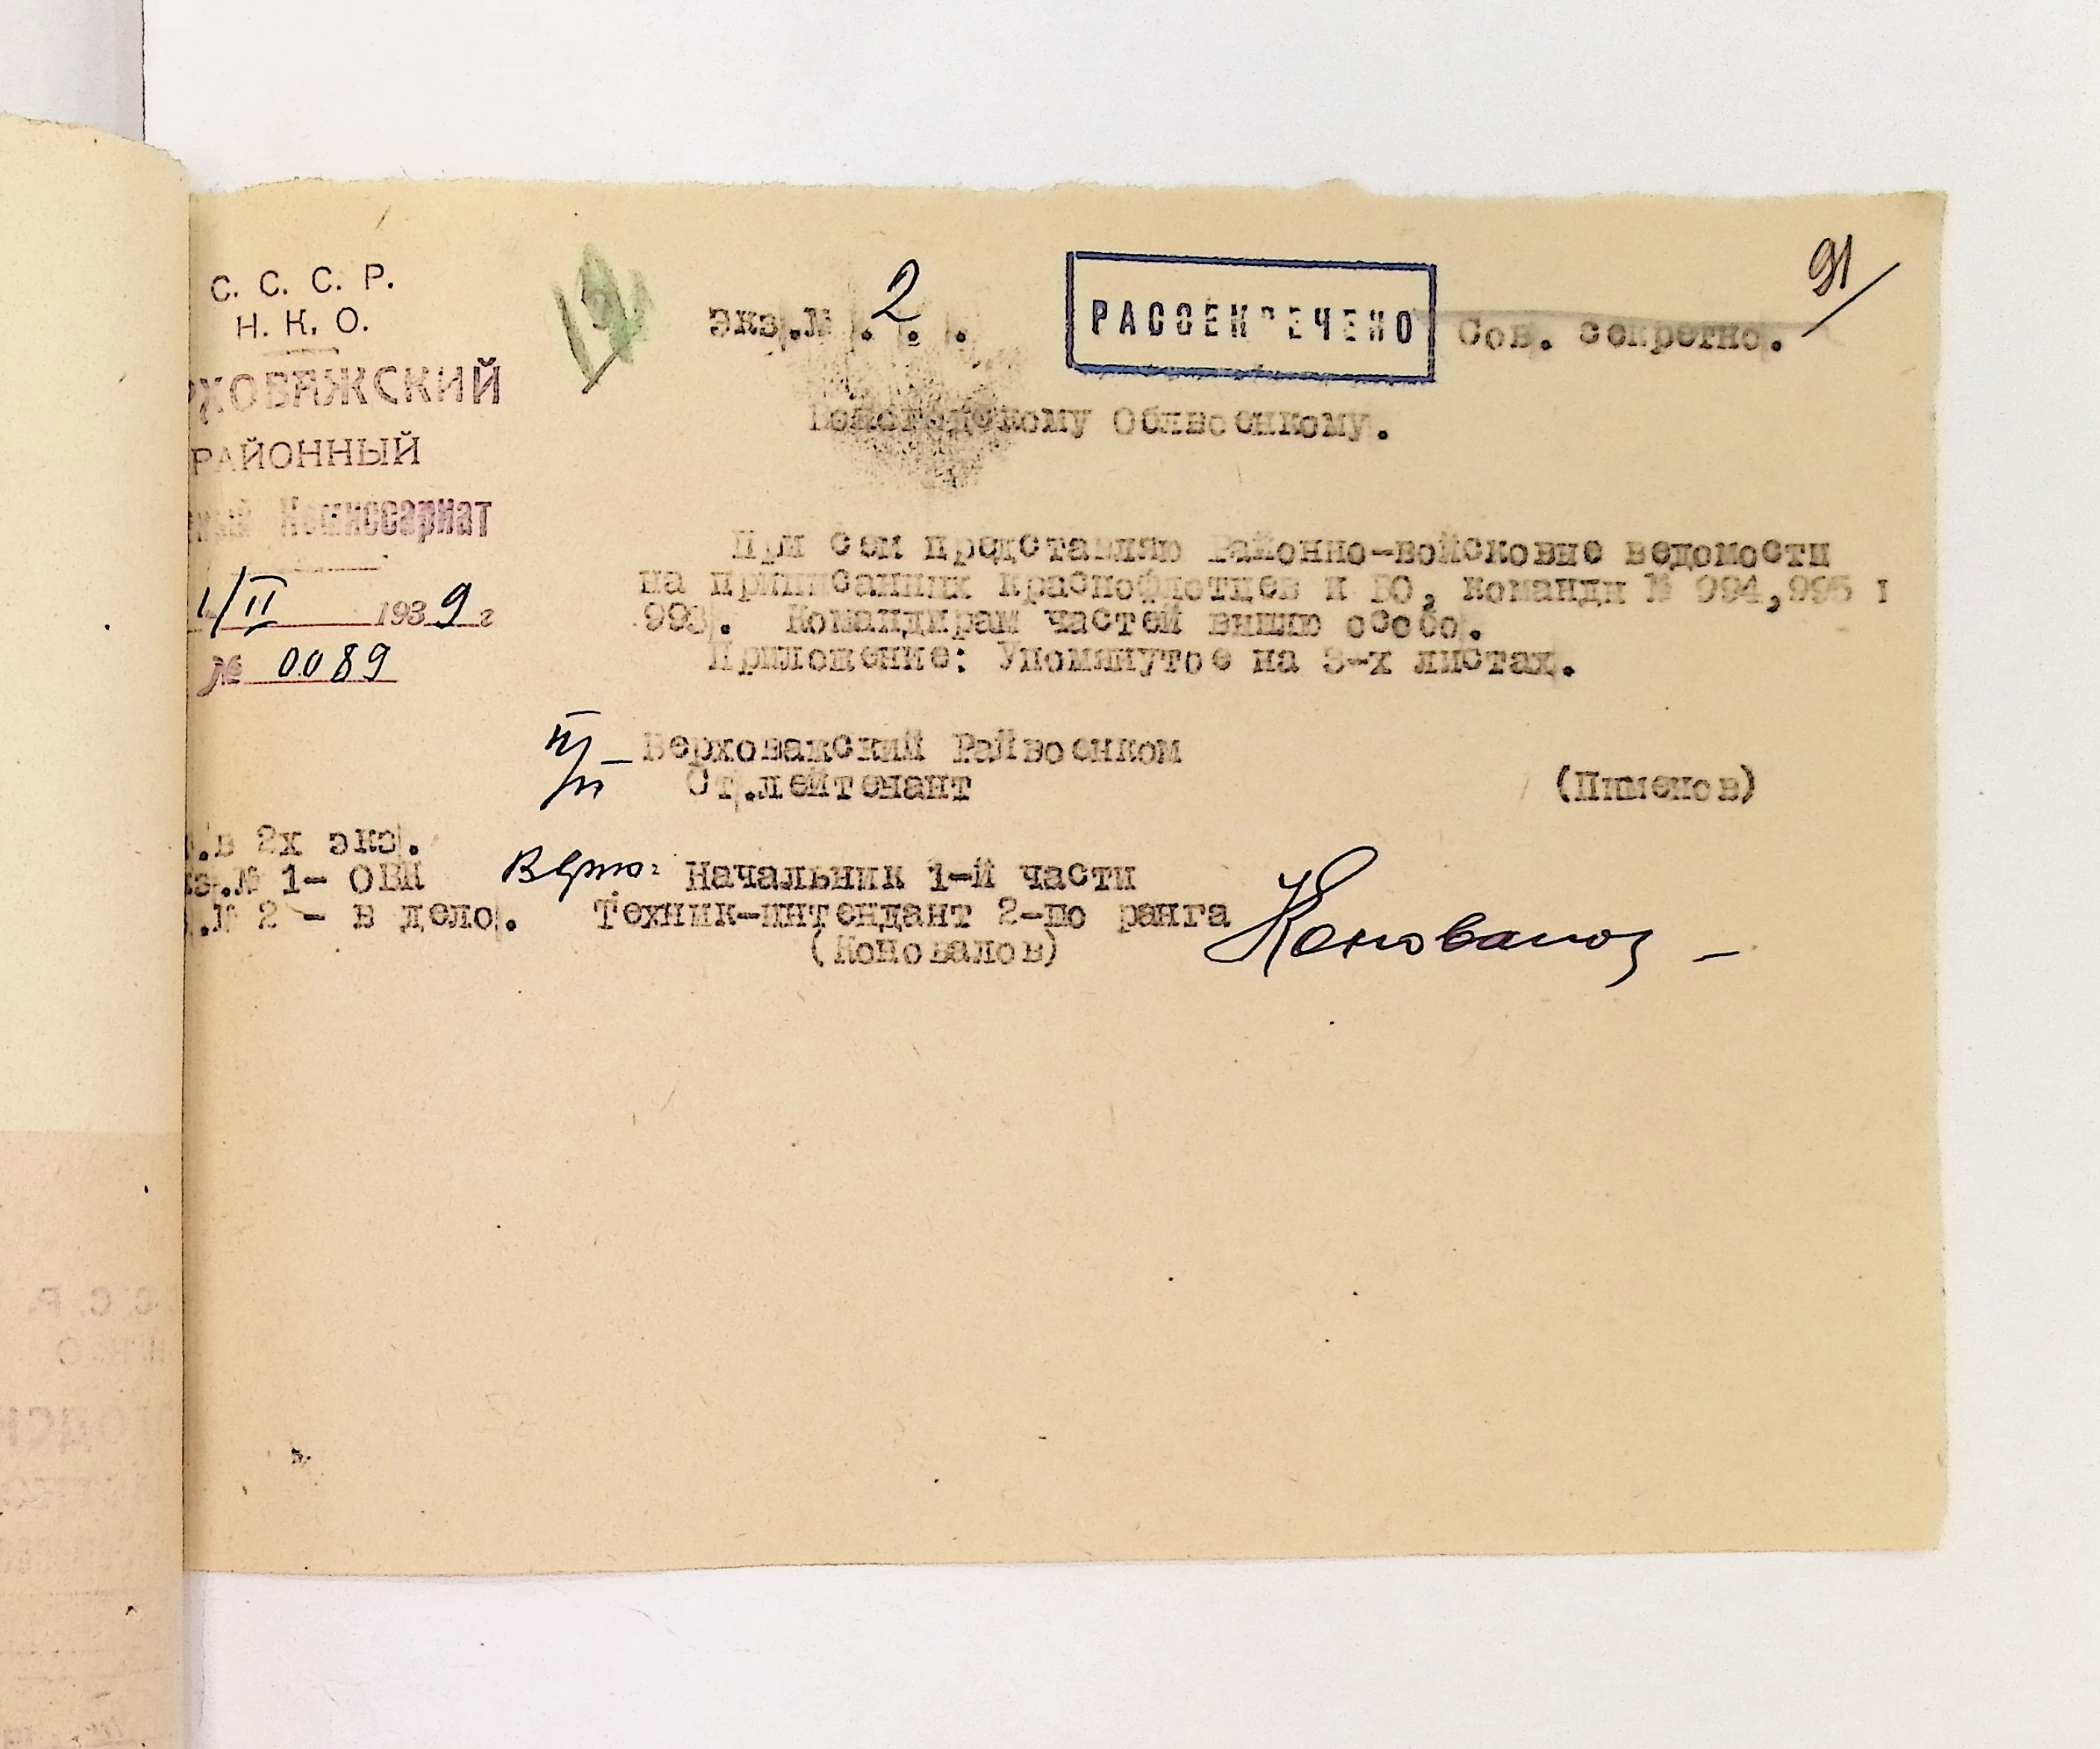 С. С. С. Р.
Н. К. О.
РХОВАЖСКИЙ
РАЙОННЫЙ
Комиссариат
1/II 1939 г
№ 0089
экз.№ .2. .
РАССЕКРЕЧЕНО
Сов. секретно.
91
Вологодскому Облвоенкому.
При сем представляю Районно-войсковые ведомости
на приписанных краснофлотцев к ВО, команды № 994,995 и
993. Командирам частей вышлю особо.
Приложение: Упомянутое на 3-х листах.
Верховажский Райвоенком
Ст.лейтенант (Пименов)
.в 2х экз.
з.№ 1- ОВК
.№ 2 - в дело.
Верно: Начальник 1-й части
Техник-интендант 2-го ранга
(Коновалов) Коновалов